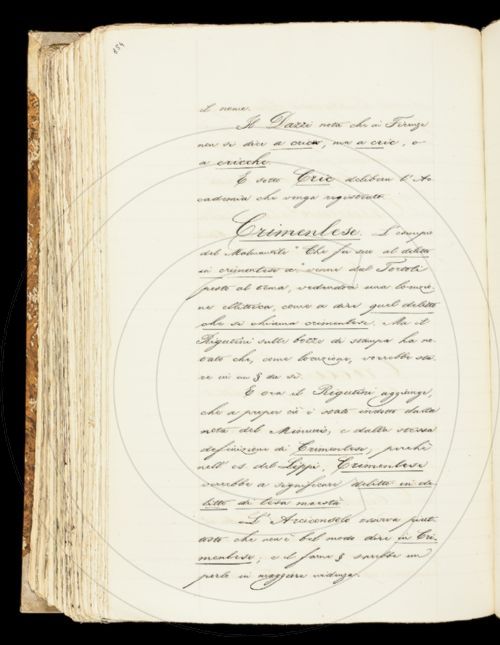 154
il nome.
Il Dazzi nota che in Firenze
non si dice a cricco, ma a cric, o
a cricche.
E sotto Cric delibera l'Ac-
cademia che venga registrato.
Crimenlese. L'esempio
del Malmantile "Che fu seco al delitto
in crimenlese a" venne dal Tortoli
posto al tema, vedendovi una locuzio-
ne ellittica, come a dire quel delitto
che si chiama crimenlese. Ma il
Rigutini sulle bozze di stampa ha no-
tato che, come locuzione, vorrebbe sta-
re in un § da sé.
E ora il Rigutini aggiunge,
che a proper ciò è stato indotto dalla
nota del Minucci, e dalla stessa
definizione di Crimenlese, perchè
nell'es. del Lippi, Crimenlese
verrebbe a significare delitto in de-
litto di lesa maestà.
L'Arciconsolo osserva piut-
tosto che non è bel modo dire in Cri-
menlese; e il farne § sarebbe un
porlo in maggiore evidenza.